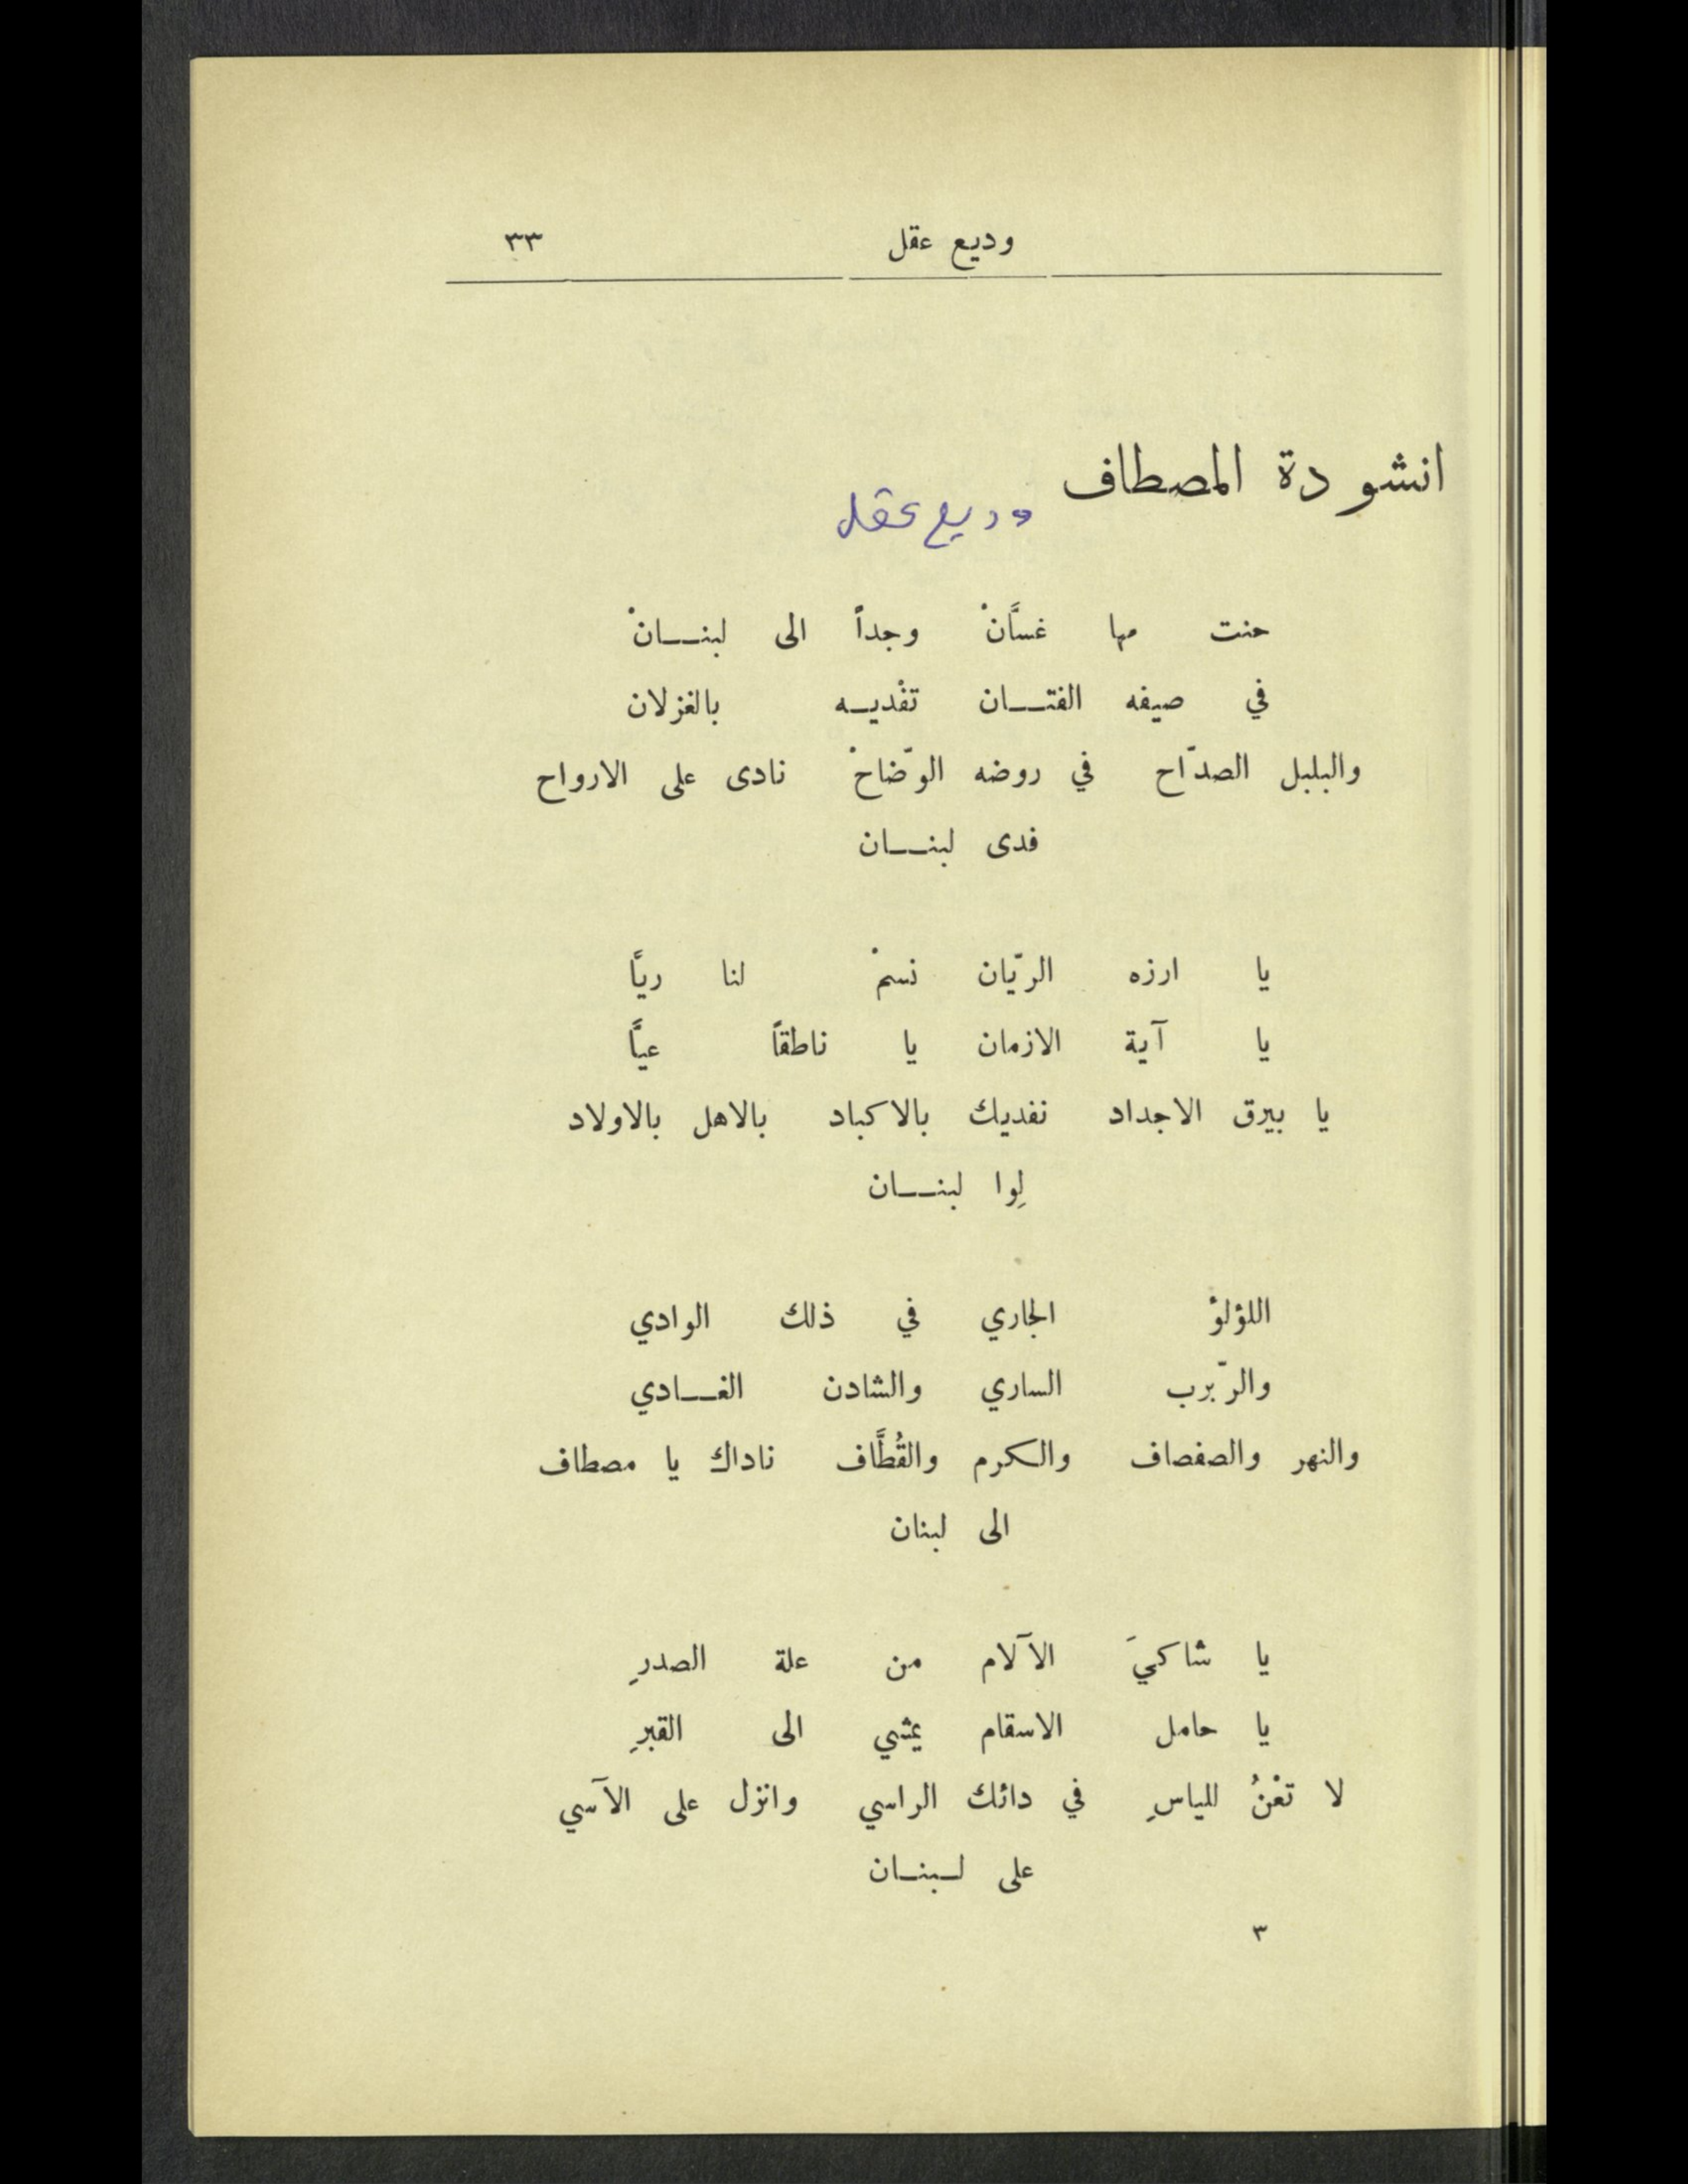 وديع عقل ٣٣
انشودة المصطاف
وديع عقل
حنت مها غسَّانْ وجداً الى لبنــانْ
في صيفه الفتــان تفْديــه بالغزلان
والبلبل الصدّاح في روضه الوّضاحْ نادى على الارواح
فدى لبنــان
يا ارزه الريّان نسمْ لنا ريَّا
يا آية الازمان يا ناطقاً عيَّا
يا بيرق الاجداد نفديك بالاكباد بالاهل بالاولاد
لِوا لبنــان
اللؤلؤْ الجاري في ذلك الوادي
والرّبرب الساري والشادن الغــادي
والنهر والصفصاف والكرم والقُطَّاف ناداك يا مصطاف
الى لبنان
يا شاكيَ الآلام من علة الصدرِ
يا حامل الاسقام يمشي الى القبرِ
لا تعْنُ للياسِ في دائك الراسي وانزل على الآسي
على لــبنــان
٣